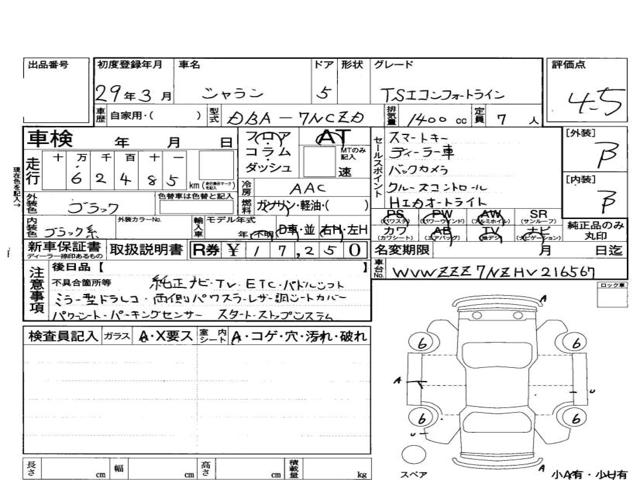 出品番号 初度登録年月 車名 ドア 形状 グレード 評価点
29年3月 シャラン 5 TSIコンフォートライン 4.5
車歴 自家用・( ) 型式 DBA-7NCZD 排気量 1400cc 定員 7人
車検 年 月 日 フロア コラム ダッシュ AT MTのみ記入 速
走行 十 万 千 百 十
6 2 4 8 5 km
冷房 AAC
外装色 ブラック 色替車は色替と記入 燃料 ガソリン・軽油・( )
内装色 ブラック系 外装カラーNo. 輸入車 モデル年式 年(不明) D車・並 右H・左H
新車保証書 ディーラー捺印あるもの 取扱説明書 R券 ¥17,250
セールスポイント
スマートキー
ディーラー車
バックカメラ
クルーズコントロール
HIDオートライト
PS (パワステ) PW (パワーウインド) AW (アルミホイル) SR (サンルーフ)
カワ (カワシート) AB (エアバッグ) TV ナビ (ナビゲーション)
純正品のみ丸印
[外装] B
[内装] B
名変期限 月 日迄
車台No. WVWZZZ7NZHV216567
現在色を記入→
注意事項
後日品【 】
不具合箇所等 純正ナビ・TV・ETC・パドルシフト
ミラー型ドラレコ・両側パワスラ・レザー調シートカバー
パワーシート・パーキングセンサー スタート・ストップシステム
ロック車
検査員記入 ガラス A・X要ス 室内シート A・コゲ・穴・汚れ・破れ
A
6 6
A U
6 6
A
スペア
小A有・小U有
長さ cm 幅 cm 高さ cm 積載量 kg